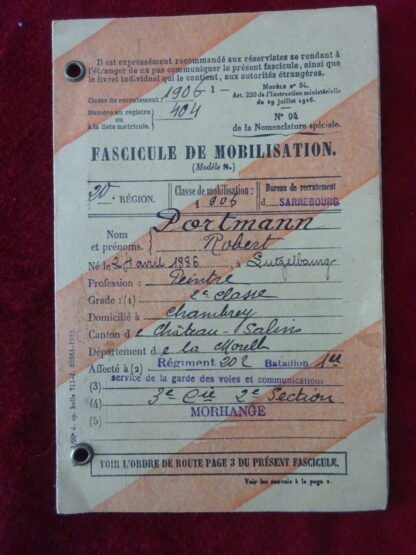 Il est expressément recommandé aux réservistes se rendant à
l'étranger de ne pas communiquer le présent fascicule, ainsi que
le livret individuel qui le contient, aux autorités étrangères.
Classe de recrutement : 1906 1 -
Modèle n° 54.
Art. 220 de l'Instruction ministérielle
du 29 juillet 1926.
Numéro au registre
ou
à la liste matricule. } 404
N° 94
de la Nomenclature spéciale.
FASCICULE DE MOBILISATION.
(Modèle S.)
20 RÉGION.
Classe de mobilisation :
1906
Bureau de recrutement
d SARREBOURG
Nom
et prénoms. { Portmann
Robert
Né le 24 avril 1886, à Lutzelbourg
Profession : Peintre
Grade : (1) 2e classe
Domicilié à Chambrey
Canton de Château-Salins
Département de la Moselle
Affecté à (2) Régiment 202 Bataillon
(3) service de la garde des voies et communications
(4) 3e Cie 2e Section
(5) MORHANGE
VOIR L'ORDRE DE ROUTE PAGE 3 DU PRÉSENT FASCICULE.
Voir les renvois à la page 2.